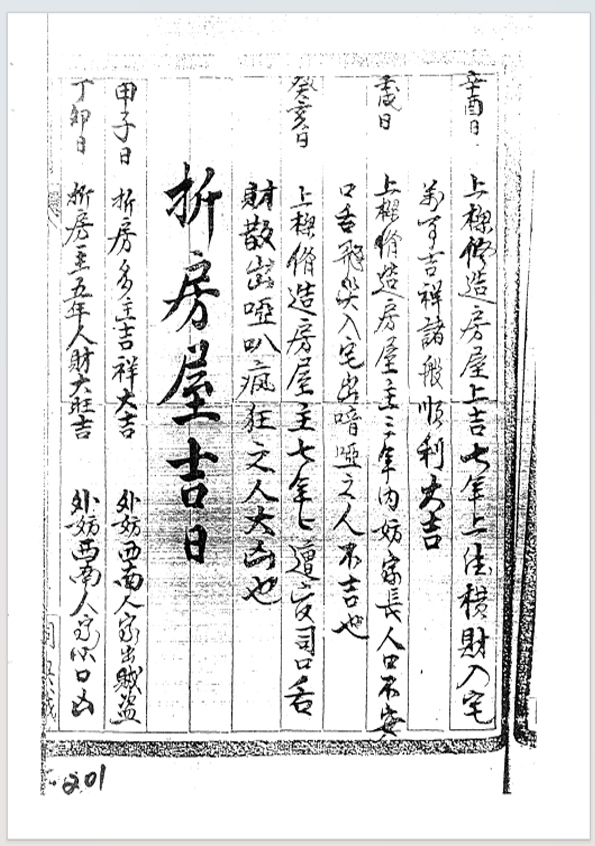 辛酉日 上樑修造房屋上吉七年上注横財入宅
萬事吉祥諸般順利大吉
戌日 上樑脩造房屋主三年內妨家長人口不安
口舌飛災入宅出啞之人不吉也
癸亥日 上樑脩造房屋主七年遭官司口舌
財散出啞叭瘋狂之人大凶也
折房屋吉日
甲子日 折房多主吉祥大吉 外妨西南人家出賊盜
丁卯日 折房主五年人財大旺吉 外妨西南人家口凶
201